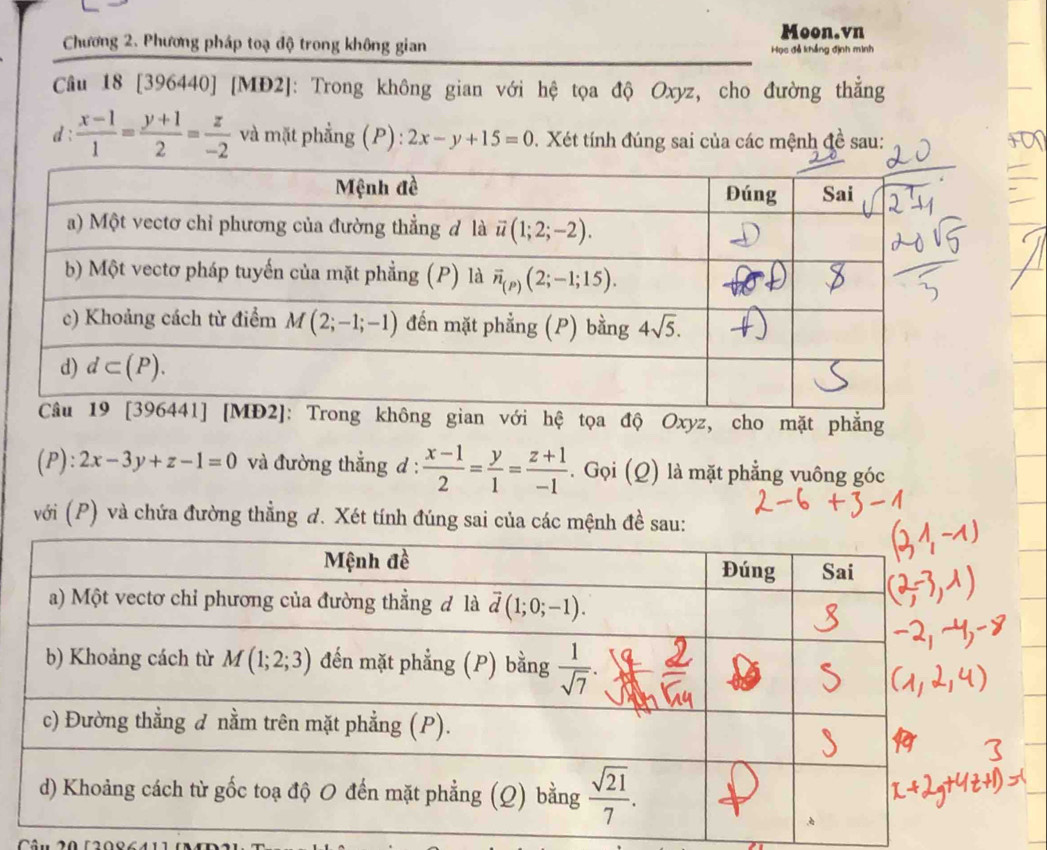 Moon.vn
Chương 2. Phương pháp toạ độ trong không gian
Học để khẳng định mình
Câu 18 [396440] [MĐ2]: Trong không gian với hệ tọa độ Oxyz, cho đường thẳng
d : (x-1)/1 = (y+1)/2 = z/(-2) và mặt phẳng (P) : 2x - y + 15 = 0. Xét tính đúng sai của các mệnh đề sau:
20
20
√(2²+1)
20√5
5
Mệnh đề Đúng Sai
a) Một vectơ chỉ phương của đường thẳng d là u⃗(1;2;-2). Đ
b) Một vectơ pháp tuyến của mặt phẳng (P) là n⃗(P)(2;-1;15). Đ S
c) Khoảng cách từ điểm M(2;-1;-1) đến mặt phẳng (P) bằng 4√5. Đ
d) d ⊂ (P). S
Câu 19 [396441] [MĐ2]: Trong không gian với hệ tọa độ Oxyz, cho mặt phẳng
(P): 2x - 3y + z - 1 = 0 và đường thẳng d : (x-1)/2 = y/1 = (z+1)/(-1). Gọi (Q) là mặt phẳng vuông góc
2-6+3-1
với (P) và chứa đường thẳng d. Xét tính đúng sai của các mệnh đề sau:
(2,1,-1)
Mệnh đề Đúng Sai
(2,-3,1)
a) Một vectơ chỉ phương của đường thẳng d là d⃗(1;0;-1). S
-2,-4,-8
b) Khoảng cách từ M(1;2;3) đến mặt phẳng (P) bằng 1/√7. 2/√14 S
(1,2,4)
c) Đường thẳng d nằm trên mặt phẳng (P). S
3
x+2y+4z+D=0
d) Khoảng cách từ gốc toạ độ O đến mặt phẳng (Q) bằng √21/7. Đ